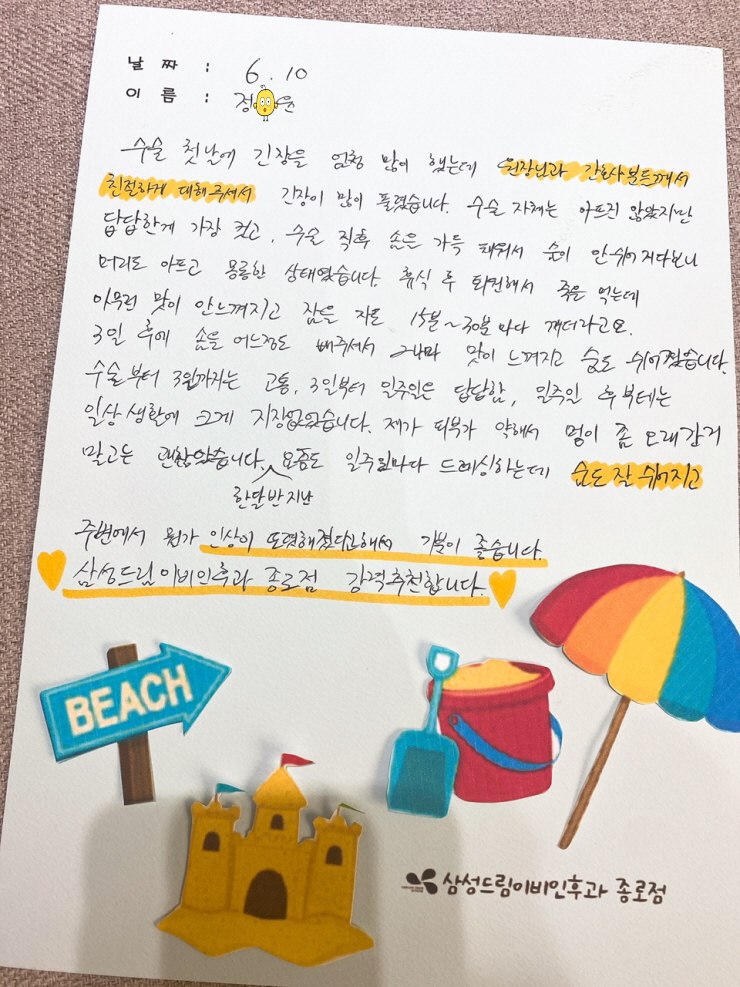 날 짜 : 6. 10
이 름 : 정 윤
수술 첫날에 긴장을 엄청 많이 했는데 원장님과 간호사분들께서
친절하게 대해주셔서 긴장이 많이 풀렸습니다. 수술 자체는 아프진 않았지만
답답한게 가장 컸고, 수술 직후 솜은 가득 채워서 숨이 안쉬어지다보니
머리도 아프고 몽롱한 상태였습니다. 휴식 후 퇴원해서 죽을 먹는데
아무런 맛이 안느껴지고 잠을 자도 15분~30분마다 깨더라고요.
3일 후에 솜을 어느정도 빼주셔서 그나마 맛이 느껴지고 숨도 쉬어졌습니다.
수술부터 3일까지는 고통, 3일부터 일주일은 답답함, 일주일 후부터는
일상생활에 크게 지장없었습니다. 제가 피부가 약해서 멍이 좀 오래간거
말고는 괜찮았습니다. 요즘도 일주일마다 드레싱하는데 숨도 잘 쉬어지고
한달반지난
주변에서 뭔가 인상이 또렷해졌다고해서 기분이 좋습니다.
삼성드림이비인후과 종로점 강력추천합니다.
BEACH
삼성드림이비인후과 종로점